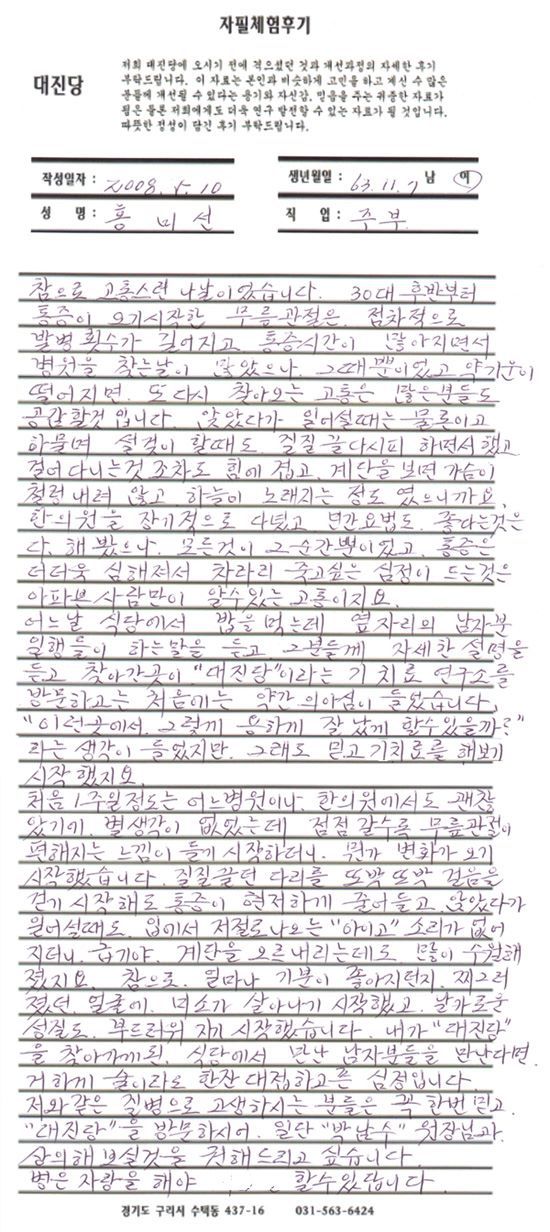 자필체험후기
대진당
저희 대진당에 오시기 전에 겪으셨던 것과 개선과정의 자세한 후기
부탁드립니다. 이 자료는 본인과 비슷하게 고민을 하고 계신 수 많은
분들께 개선될 수 있다는 용기와 자신감, 믿음을 주는 귀중한 자료가
됨은 물론 저희에게도 더욱 연구 발전할 수 있는 자료가 될 것입니다.
따뜻한 정성이 담긴 후기 부탁드립니다.
작성일자 : 2008. 5. 10
생년월일 : 63. 11. 7 남 여
성 명 : 홍 미 선
직 업 : 주부
참으로 고통스런 나날이었습니다. 30대 후반부터
통증이 오기시작한 무릎관절은 점차적으로
발병 횟수가 길어지고 통증시간이 많아지면서
병원을 찾는날이 많았으나. 그때뿐이었고 약기운이
떨어지면. 또다시 찾아오는 고통은 많은분들도
공감할것 입니다. 앉았다가 일어설때는 물론이고
하물며 설겆이 할때도. 질질 끌다시피 하면서 했고
걸어다니는것 조차도 힘에 겹고. 계단을 보면 가슴이
철렁내려 앉고 하늘이 노래지는 정도 였으니까요.
한의원을 장기적으로 다녔고 민간요법도. 좋다는것은
다. 해봤으나. 모든것이 그순간뿐이었고. 통증은
더더욱 심해져서 차라리 죽고싶은 심정이 드는것은
아파본사람만이 알수있는 고통이지요.
어느날 식당에서 밥을먹는데 옆자리의 남자분
일행들이 하는말을 듣고 그분들께 자세한 설명을
듣고 찾아간곳이 "대진당"이라는 기 치료 연구소를
방문하고는 처음에는 약간 의아심이 들었습니다.
"이런곳에서. 그렇게 용하게 잘낫게 할수있을까?"
라는생각이 들었지만. 그래도 믿고 기치료를 해보기
시작했지요.
처음 1주일정도는 어느병원이나. 한의원에서도 괜찮
았기에. 별생각이 없었는데 점점 갈수록 무릎관절이
편해지는 느낌이 들기 시작하더니. 뭔가 변화가 오기
시작했습니다. 질질끌던 다리를 또박또박 걸음을
걷기 시작해도 통증이 현저하게 줄어들고 앉았다가
일어설때도. 입에서 저절로나오는 "아이고" 소리가 없어
지더니. 급기야. 계단을 오르내리는데도. 많이 수월해
졌지요. 참으로. 얼마나 기분이 좋아지던지. 찌그러
졌던. 얼굴에. 미소가 살아나기 시작했고. 날카로운
성질도. 부드러워 지기시작했습니다. 내가 "대진당"
을 찾아가게된. 식당에서 만난 남자분들을 만난다면.
거하게 술이라도 한잔 대접하고픈 심정입니다.
저와같은 질병으로 고생하시는 분들은 꼭 한번 믿고.
"대진당"을 방문하시어. 일단 "박남수" 원장님과.
상의해 보실것을 권해드리고 싶습니다.
병은 자랑을 해야 할수있답니다.
경기도 구리시 수택동 437-16 031-563-6424